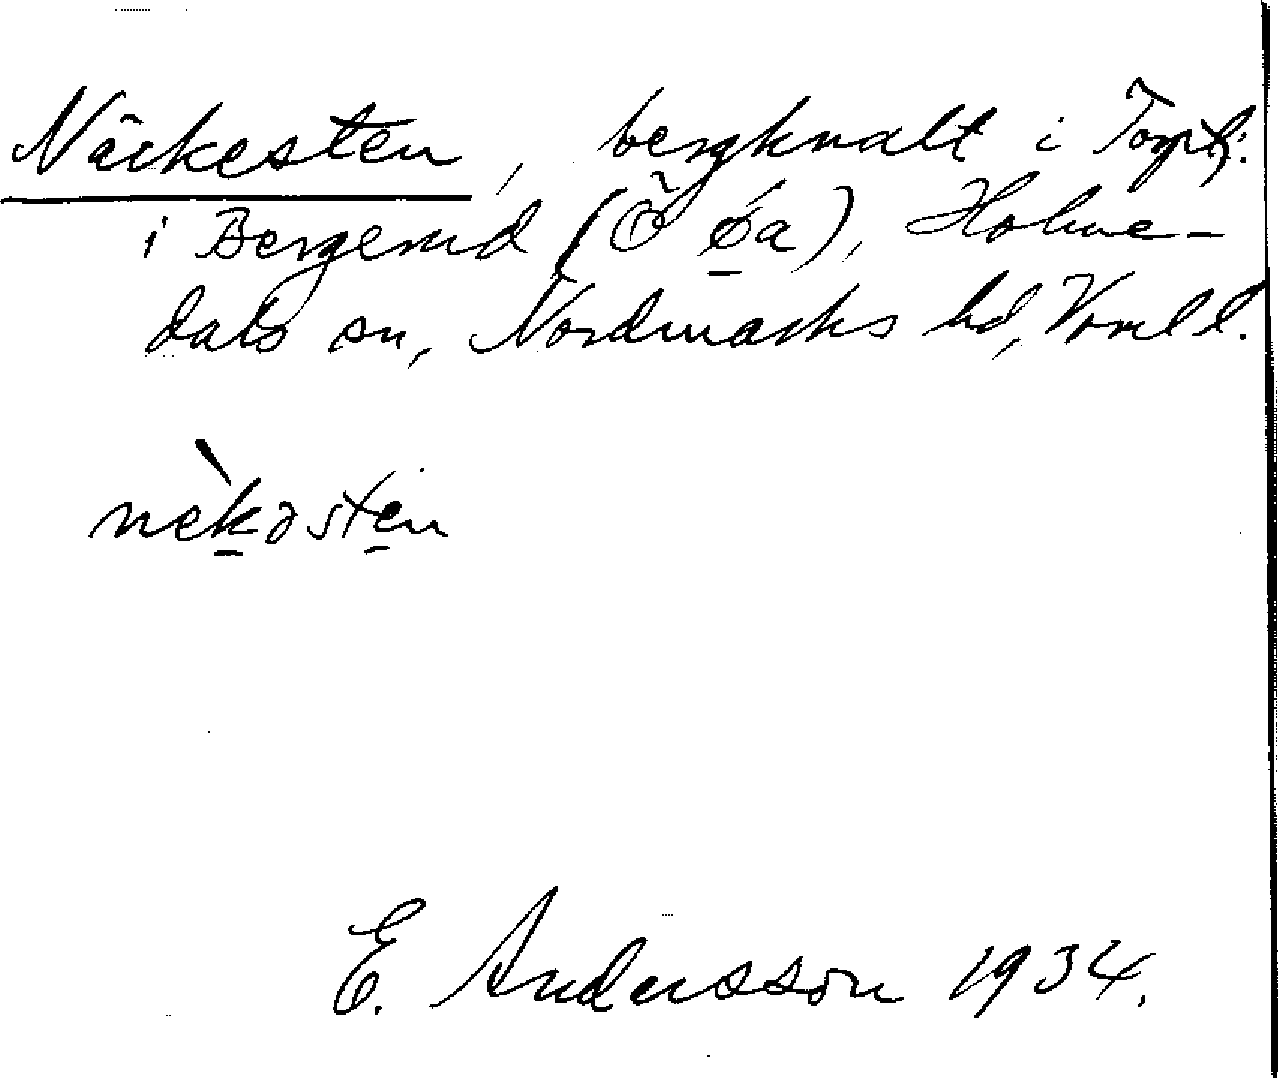 Näckesten, bergknalt i Torpt.
i Bergerud (Ö öa), Holme-
dals sn, Nordmarks hd, Vrml l.
nèkəsten
E. Andersson 1934.